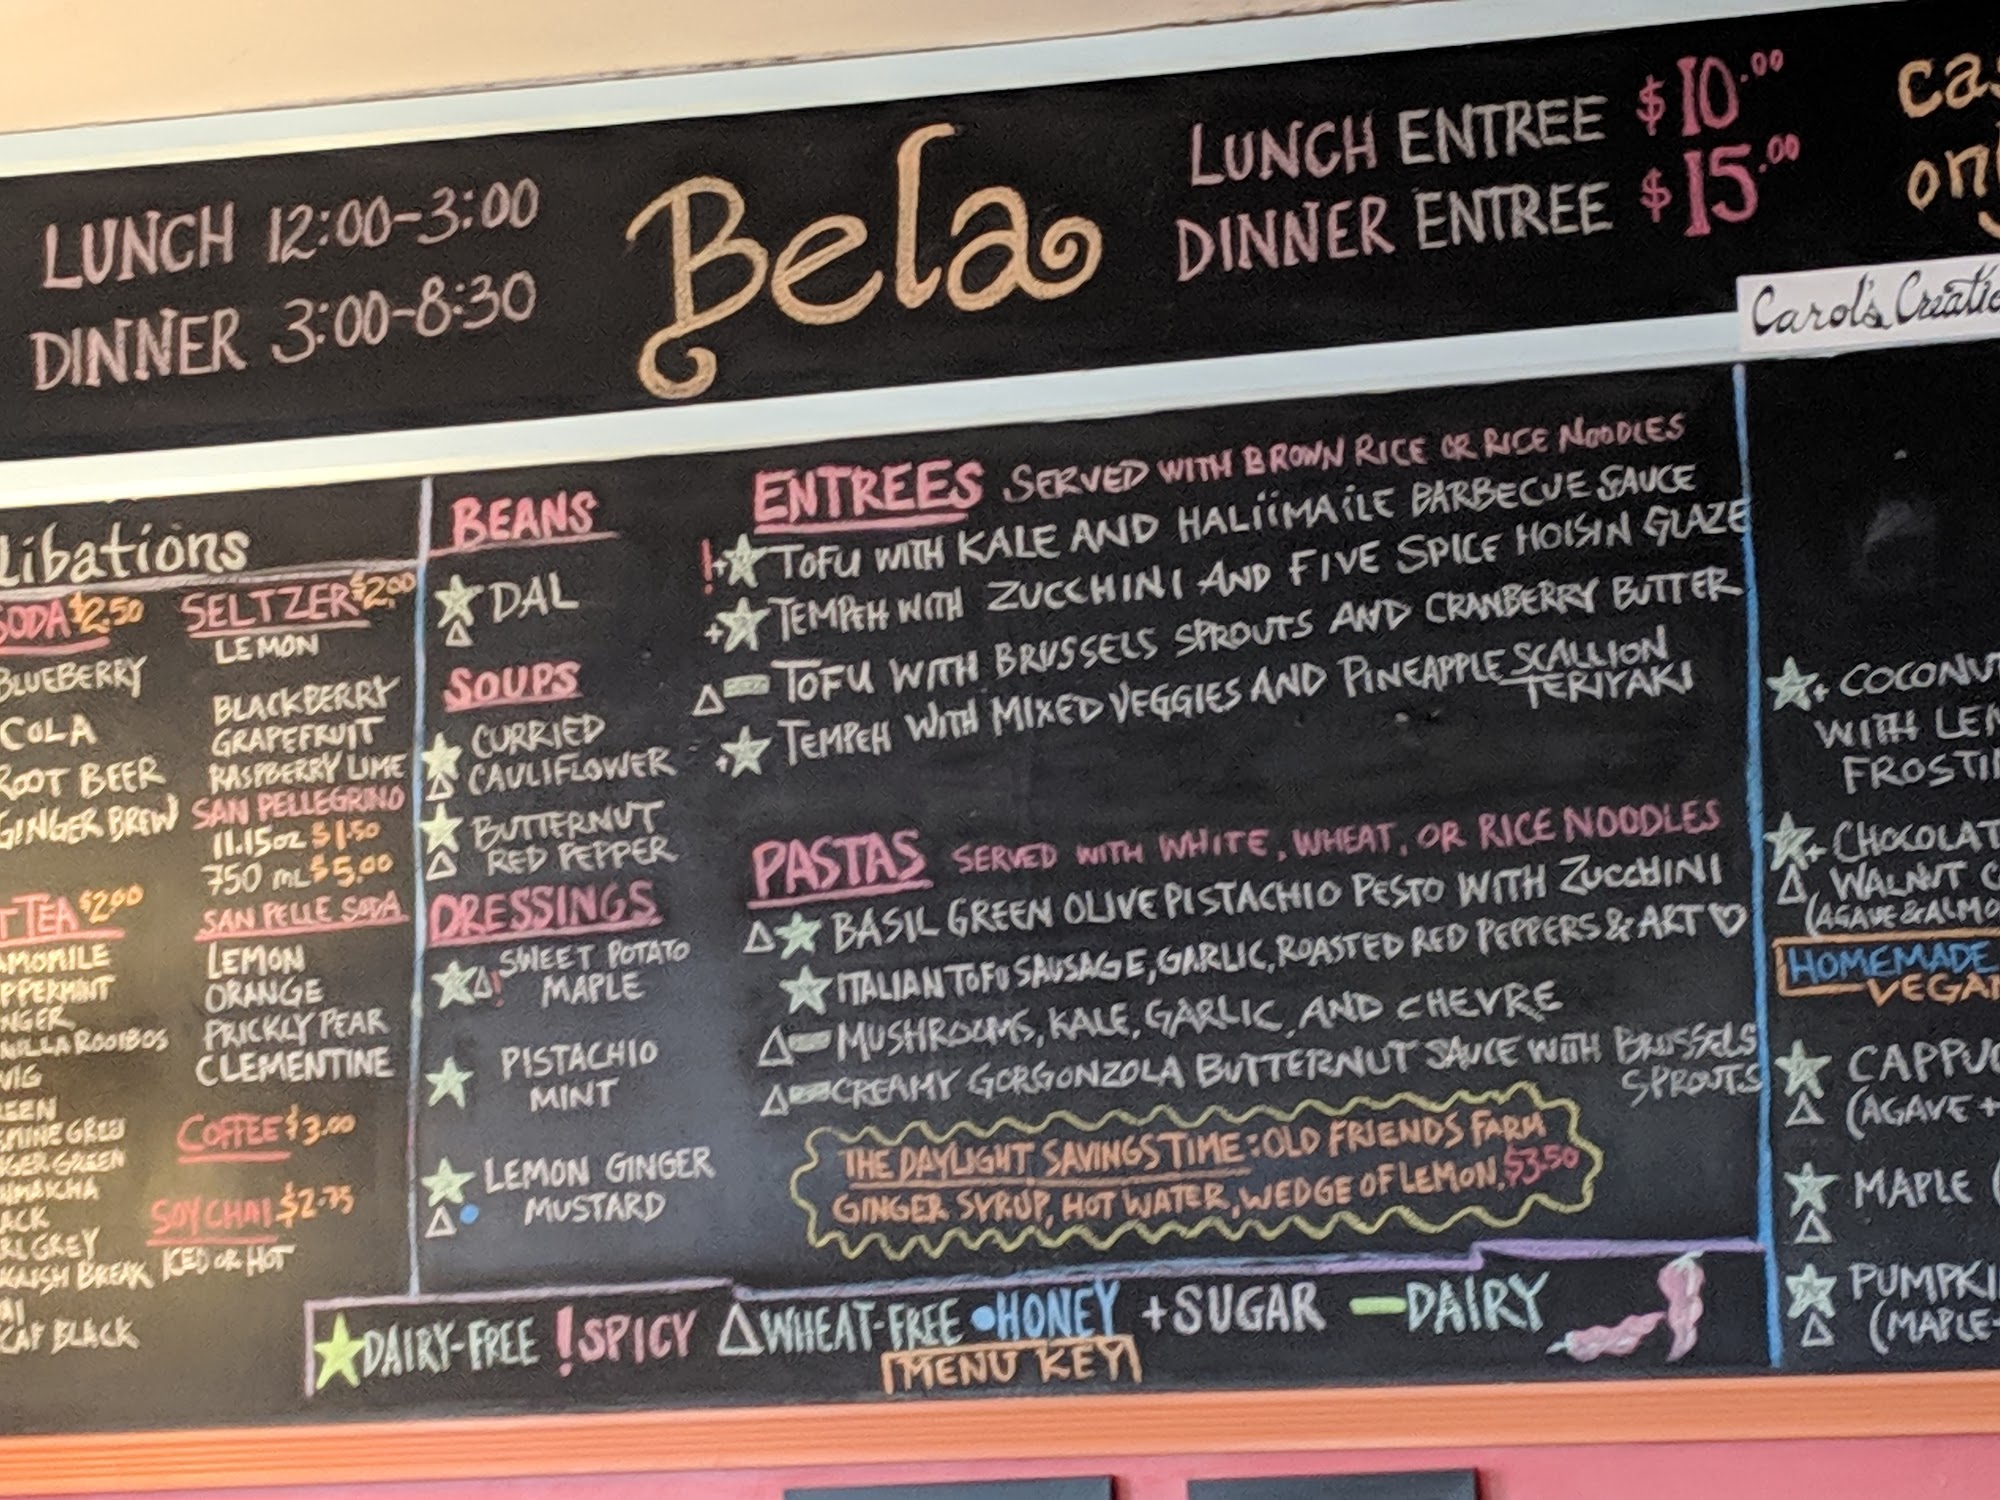 LUNCH 12:00-3:00
DINNER 3:00-8:30
Bela
LUNCH ENTREE $10.00
DINNER ENTREE $15.00
Carol's
libations
SODA $2.50
BLUEBERRY
COLA
ROOT BEER
GINGER BREW
TEA $2.00
GREY
BREAK
BLACK
SELTZER $2.00
LEMON
BLACKBERRY
GRAPEFRUIT
RASPBERRY LIME
SAN PELLEGRINO
11.15oz $1.50
750 mL $5.00
SAN PELLE SODA
LEMON
ORANGE
PRICKLY PEAR
CLEMENTINE
COFFEE $3.00
SOY CHAI $2.75
ICED OR HOT
BEANS
DAL
SOUPS
CURRIED
CAULIFLOWER
BUTTERNUT
RED PEPPER
DRESSINGS
SWEET POTATO
MAPLE
PISTACHIO
MINT
LEMON GINGER
MUSTARD
ENTREES SERVED WITH BROWN RICE OR RICE NOODLES
!+ TOFU WITH KALE AND HALiiMAiLE BARBECUE SAUCE
+ TEMPEH WITH ZUCCHINI AND FIVE SPICE HOISIN GLAZE
TOFU WITH BRUSSELS SPROUTS AND CRANBERRY BUTTER
+ TEMPEH WITH MIXED VEGGIES AND PINEAPPLE SCALLION
TERIYAKI
PASTAS SERVED WITH WHITE, WHEAT, OR RICE NOODLES
BASIL GREEN OLIVE PISTACHIO PESTO WITH ZUCCHINI
ITALIAN TOFU SAUSAGE, GARLIC, ROASTED RED PEPPERS & ART ♡
MUSHROOMS, KALE, GARLIC, AND CHEVRE
CREAMY GORGONZOLA BUTTERNUT SAUCE WITH BRUSSELS
SPROUTS
THE DAYLIGHT SAVINGS TIME: OLD FRIENDS FARM
GINGER SYRUP, HOT WATER, WEDGE OF LEMON. $3.50
WITH
WALNUT
HOMEMADE
VEGAN
(AGAVE +
MAPLE (
DAIRY-FREE !SPICY WHEAT-FREE •HONEY +SUGAR DAIRY
MENU KEY